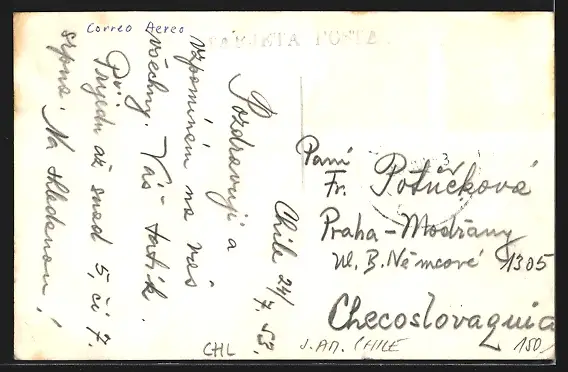 Correo Aereo
TARJETA POSTAL
Chile 24/7. 53.
Pozdravuji a
vzpomínám na vás
všechny. Váš tatík.
Přijedu až snad 5, či 7.
srpna. Na shledanou!
Paní
Fr. Potůčková
Praha - Modřany
Ul. B. Němcové 1305
Checoslovaquia
CHL
J. AM. CHILE
150/